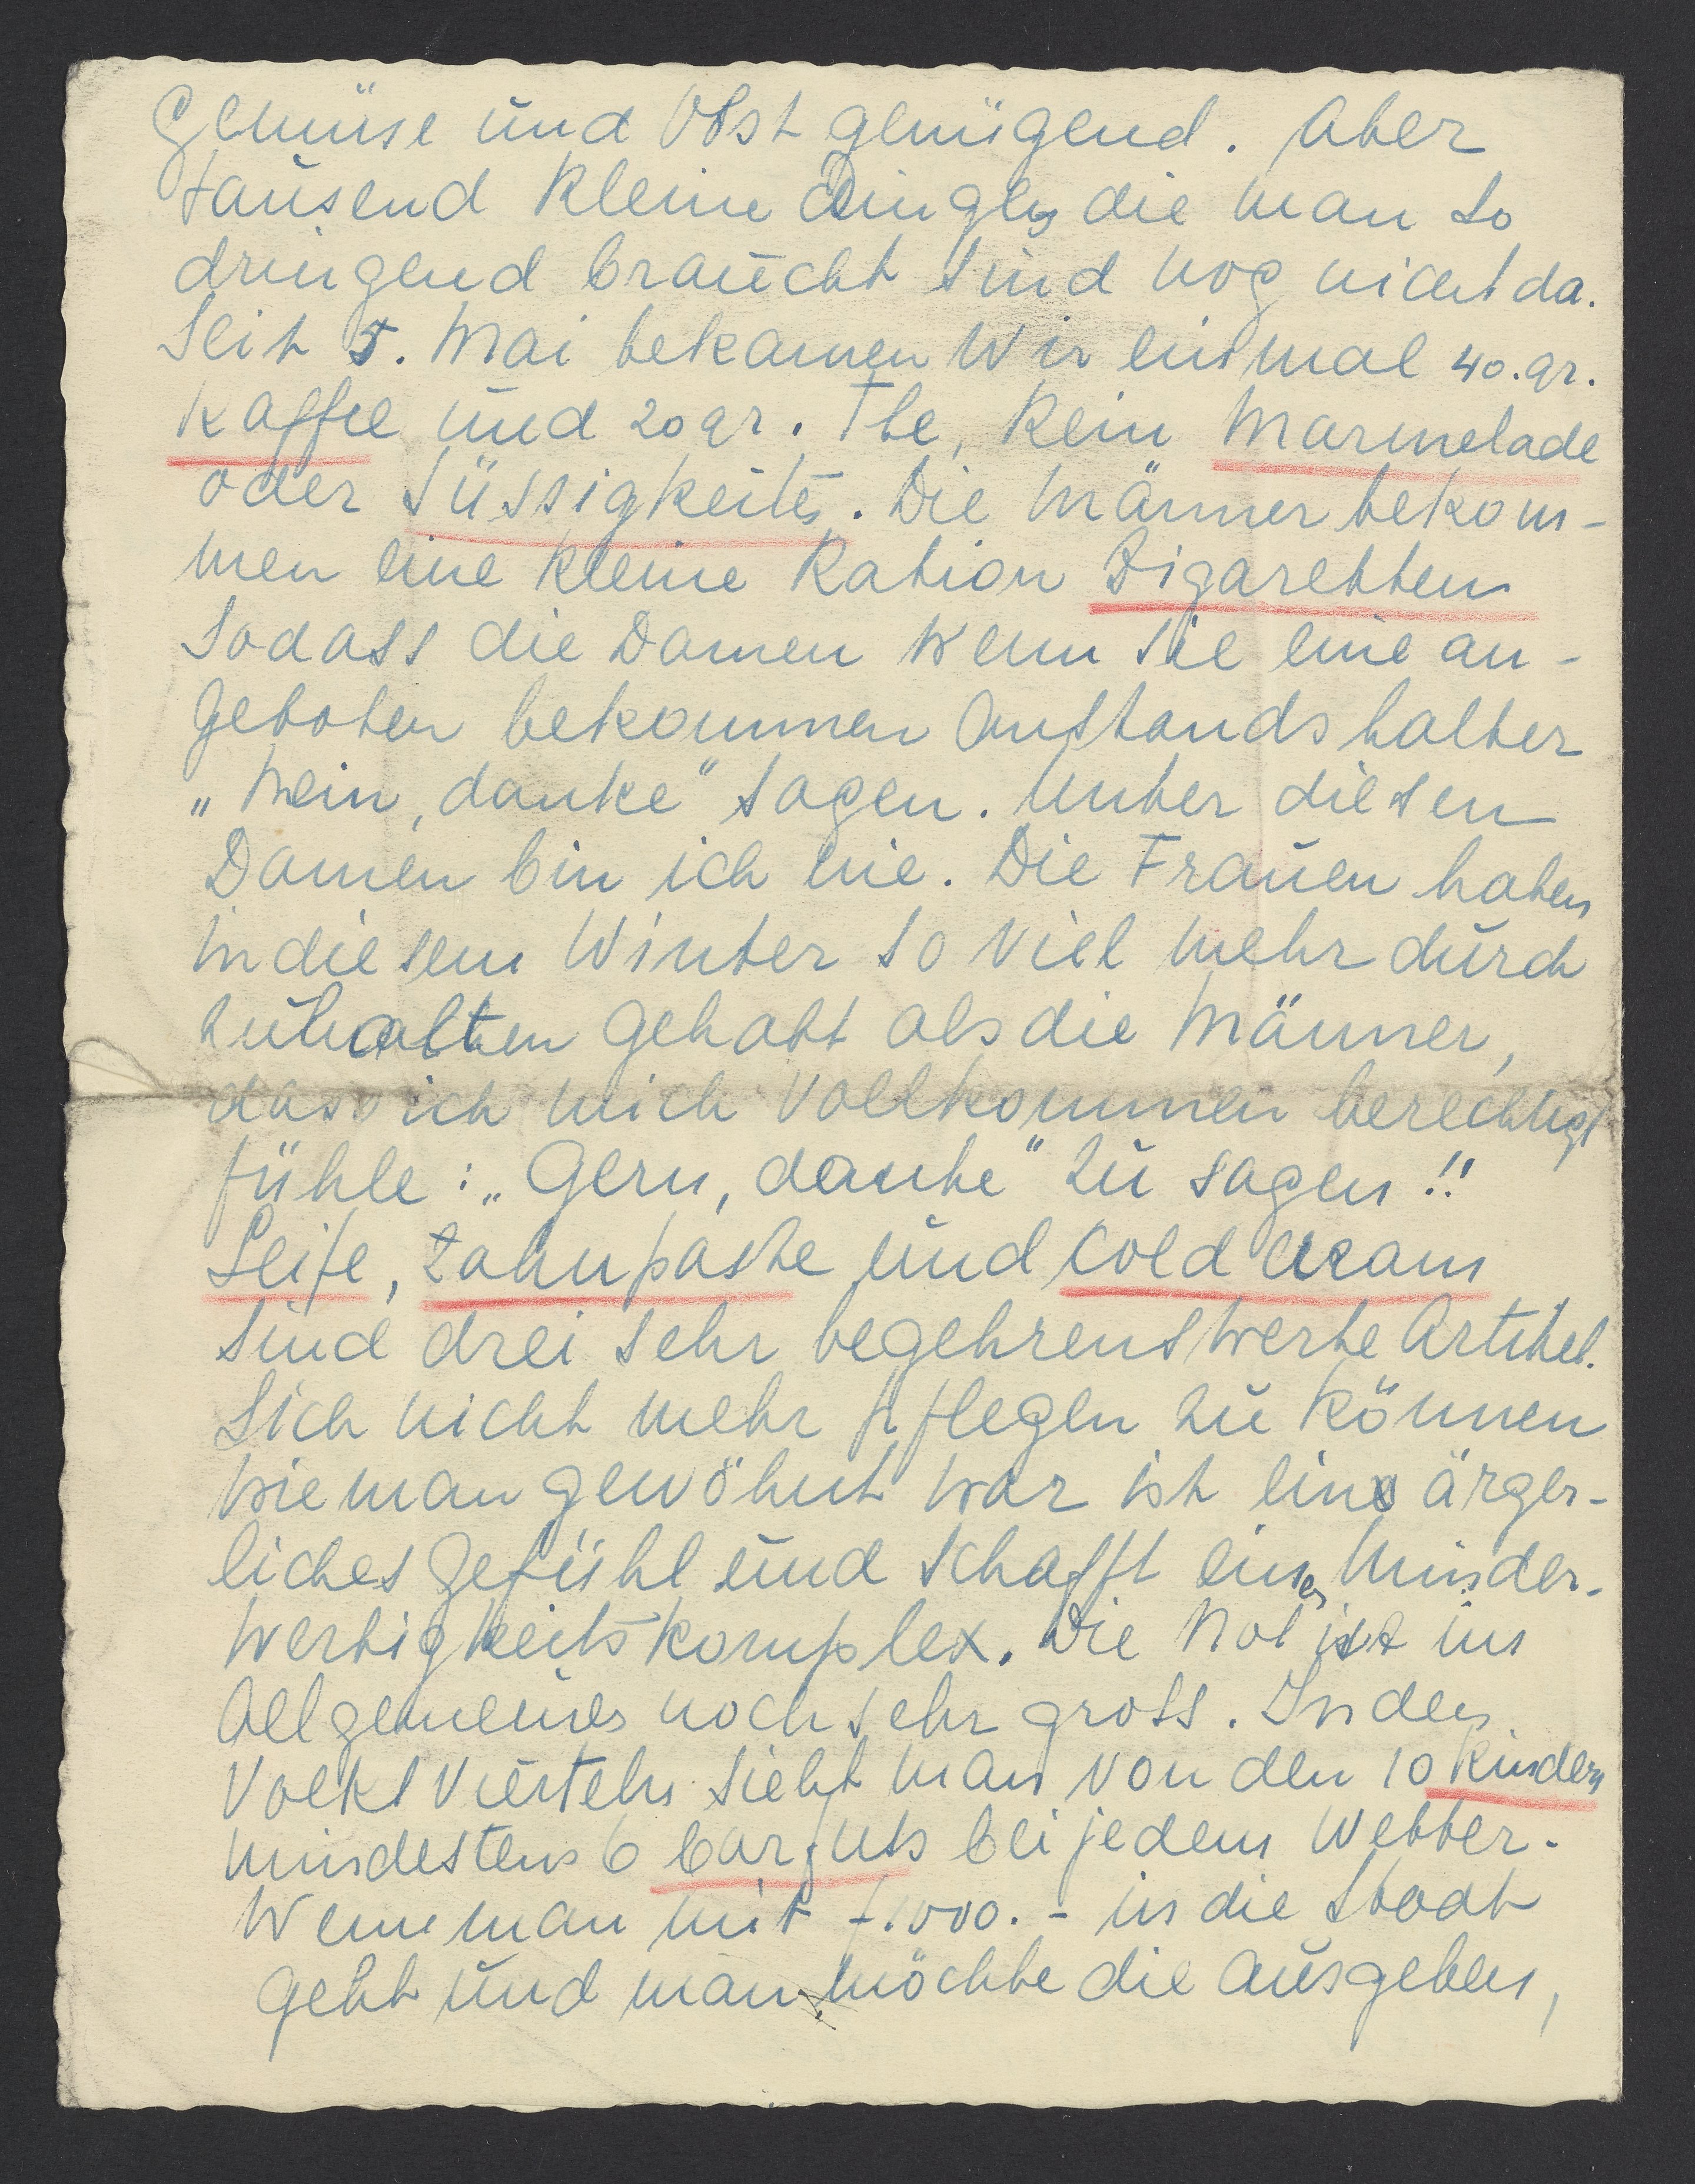 Gemüse und Obst genügend. Aber
tausend kleine Dingen die man so
dringend braucht sind nog nicht da.
Seit 5. Mai bekamen wir einmal 40. gr.
Kaffee und 20 gr. The, kein Marmelade
oder Süssigkeiten. Die Männer bekom-
men eine kleine Ration Zigaretten
sodass die Damen wenn sie eine an-
geboten bekommen anstandshalber
„Nein, danke" sagen. Unter diesen
Damen bin ich nie. Die Frauen haben
in diesem Winter so viel mehr durch
zuhalten gehabt als die Männer,
dass ich mich vollkommen berechtigt
fühle: „Gern, danke" zu sagen!!
Seife, Zahnpaste und Cold Cream
sind drei sehr begehrenswerte Artikel.
Sich nicht mehr pflegen zu können
wie man gewöhnt war ist ein ärger-
liches Gefühl und schafft einen Minder-
wertigkeitskomplex. Die Not ist im
Allgemeinen noch sehr gross. In den
Volksvierteln sieht man von den 10 Kindern
mindestens 6 barfuss bei jedem Wetter.
Wenn man mit f. 1000.- in die Stadt
geht und man möchte die ausgeben,